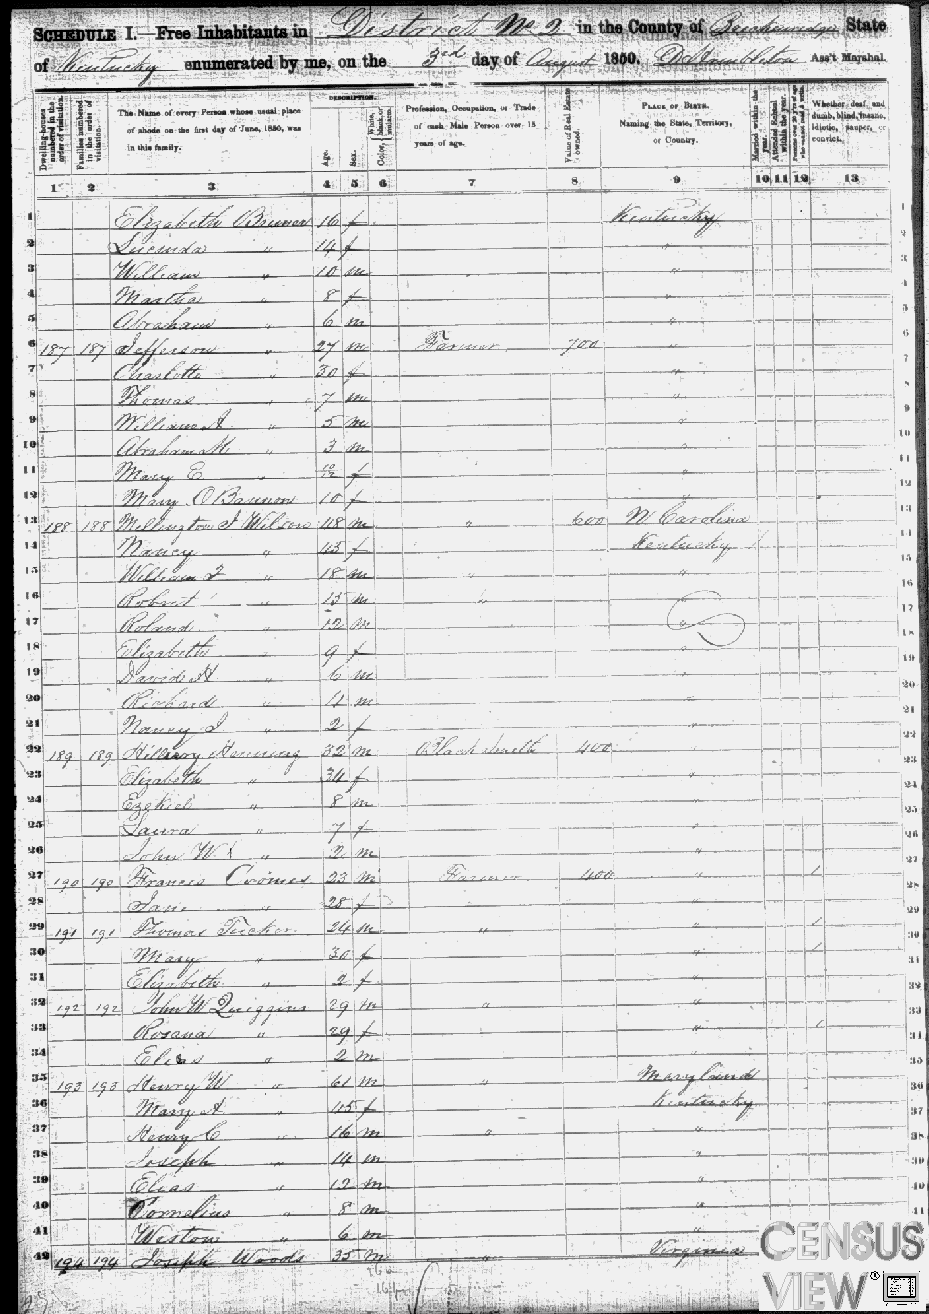 SCHEDULE I.—Free Inhabitants in District No 2 in the County of Breckenridge State
of Kentucky enumerated by me, on the 3rd day of August 1850. Ass't Marshal.
Dwelling-houses numbered in the order of visitation.
Families numbered in the order of visitation.
The Name of every Person whose usual place of abode on the first day of June, 1850, was in this family.
DESCRIPTION.
Age.
Sex.
Color, White, black, or mulatto.
Profession, Occupation, or Trade of each Male Person over 15 years of age.
Value of Real Estate owned.
PLACE OF BIRTH. Naming the State, Territory, or Country.
Married within the year.
Attended School within the year.
Persons over 20 y'rs of age who cannot read & write.
Whether deaf and dumb, blind, insane, idiotic, pauper, or convict.
1 2 3 4 5 6 7 8 9 10 11 12 13
1 Elizabeth Bruner 16 f Kentucky 1
2 Lucinda " 14 f " 2
3 William " 10 m " 3
4 Martha " 8 f " 4
5 Abraham " 6 m " 5
6 187 187 Jefferson " 27 m Farmer 700 " 6
7 Charlotte " 30 f " 7
8 Thomas " 7 m " 8
9 William J " 5 m " 9
10 Abraham M " 3 m " 10
11 Mary E " 10/12 f " 11
12 Mary O Bannon 10 f " 12
13 188 188 Wellington J Wilson 48 m " 600 N Carolina 13
14 Nancy " 43 f Kentucky / 14
15 William F " 18 m " " 15
16 Robert " 15 m " " 16
17 Roland " 12 m " 17
18 Elizabeth " 9 f " 18
19 David H " 6 m " 19
20 Richard " 4 m " 20
21 Nancy J " 2 f " 21
22 189 189 Hillary Henning 32 m Black Smith 400 " 22
23 Elizabeth " 34 f " 23
24 Ezekiel " 8 m " 24
25 Laura " 7 f " 25
26 John W " 2 m " 26
27 190 190 Frances Coomes 23 m Farmer 400 " 1 27
28 Jane " 28 f " 28
29 191 191 Thomas Tucker 24 m " " 1 29
30 Mary " 30 f " 1 30
31 Elizabeth " 2 f " 31
32 192 192 John W Quiggins 29 m " " 32
33 Rosana " 29 f " 1 33
34 Elias " 2 m " 34
35 193 193 Henry W " 61 m " Maryland 35
36 Mary A " 45 f Kentucky 36
37 Henry C " 16 m " " 37
38 Joseph " 14 m " 38
39 Elias " 12 m " 39
40 Cornelius " 8 m " 40
41 Weston " 6 m " 41
42 194 194 Joseph Woods 35 m " Virginia
CENSUS
VIEW®